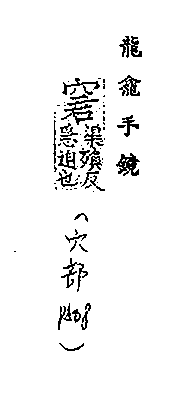 龍龕手鏡
窘
渠殞反
急迫也
(穴部
)